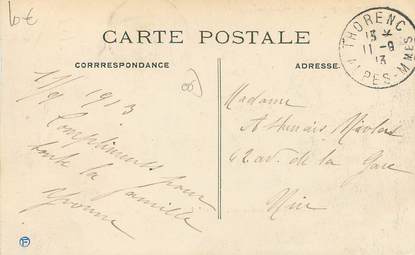 6€
CARTE POSTALE
CORRRESPONDANCE
ADRESSE
THORENC
13
11-9
13
ALPES-MMES
11/9 1913
Compliments pour
toute la famille
Yvonne
Madame
Athénaïs
62 av. de la Gare
Nice